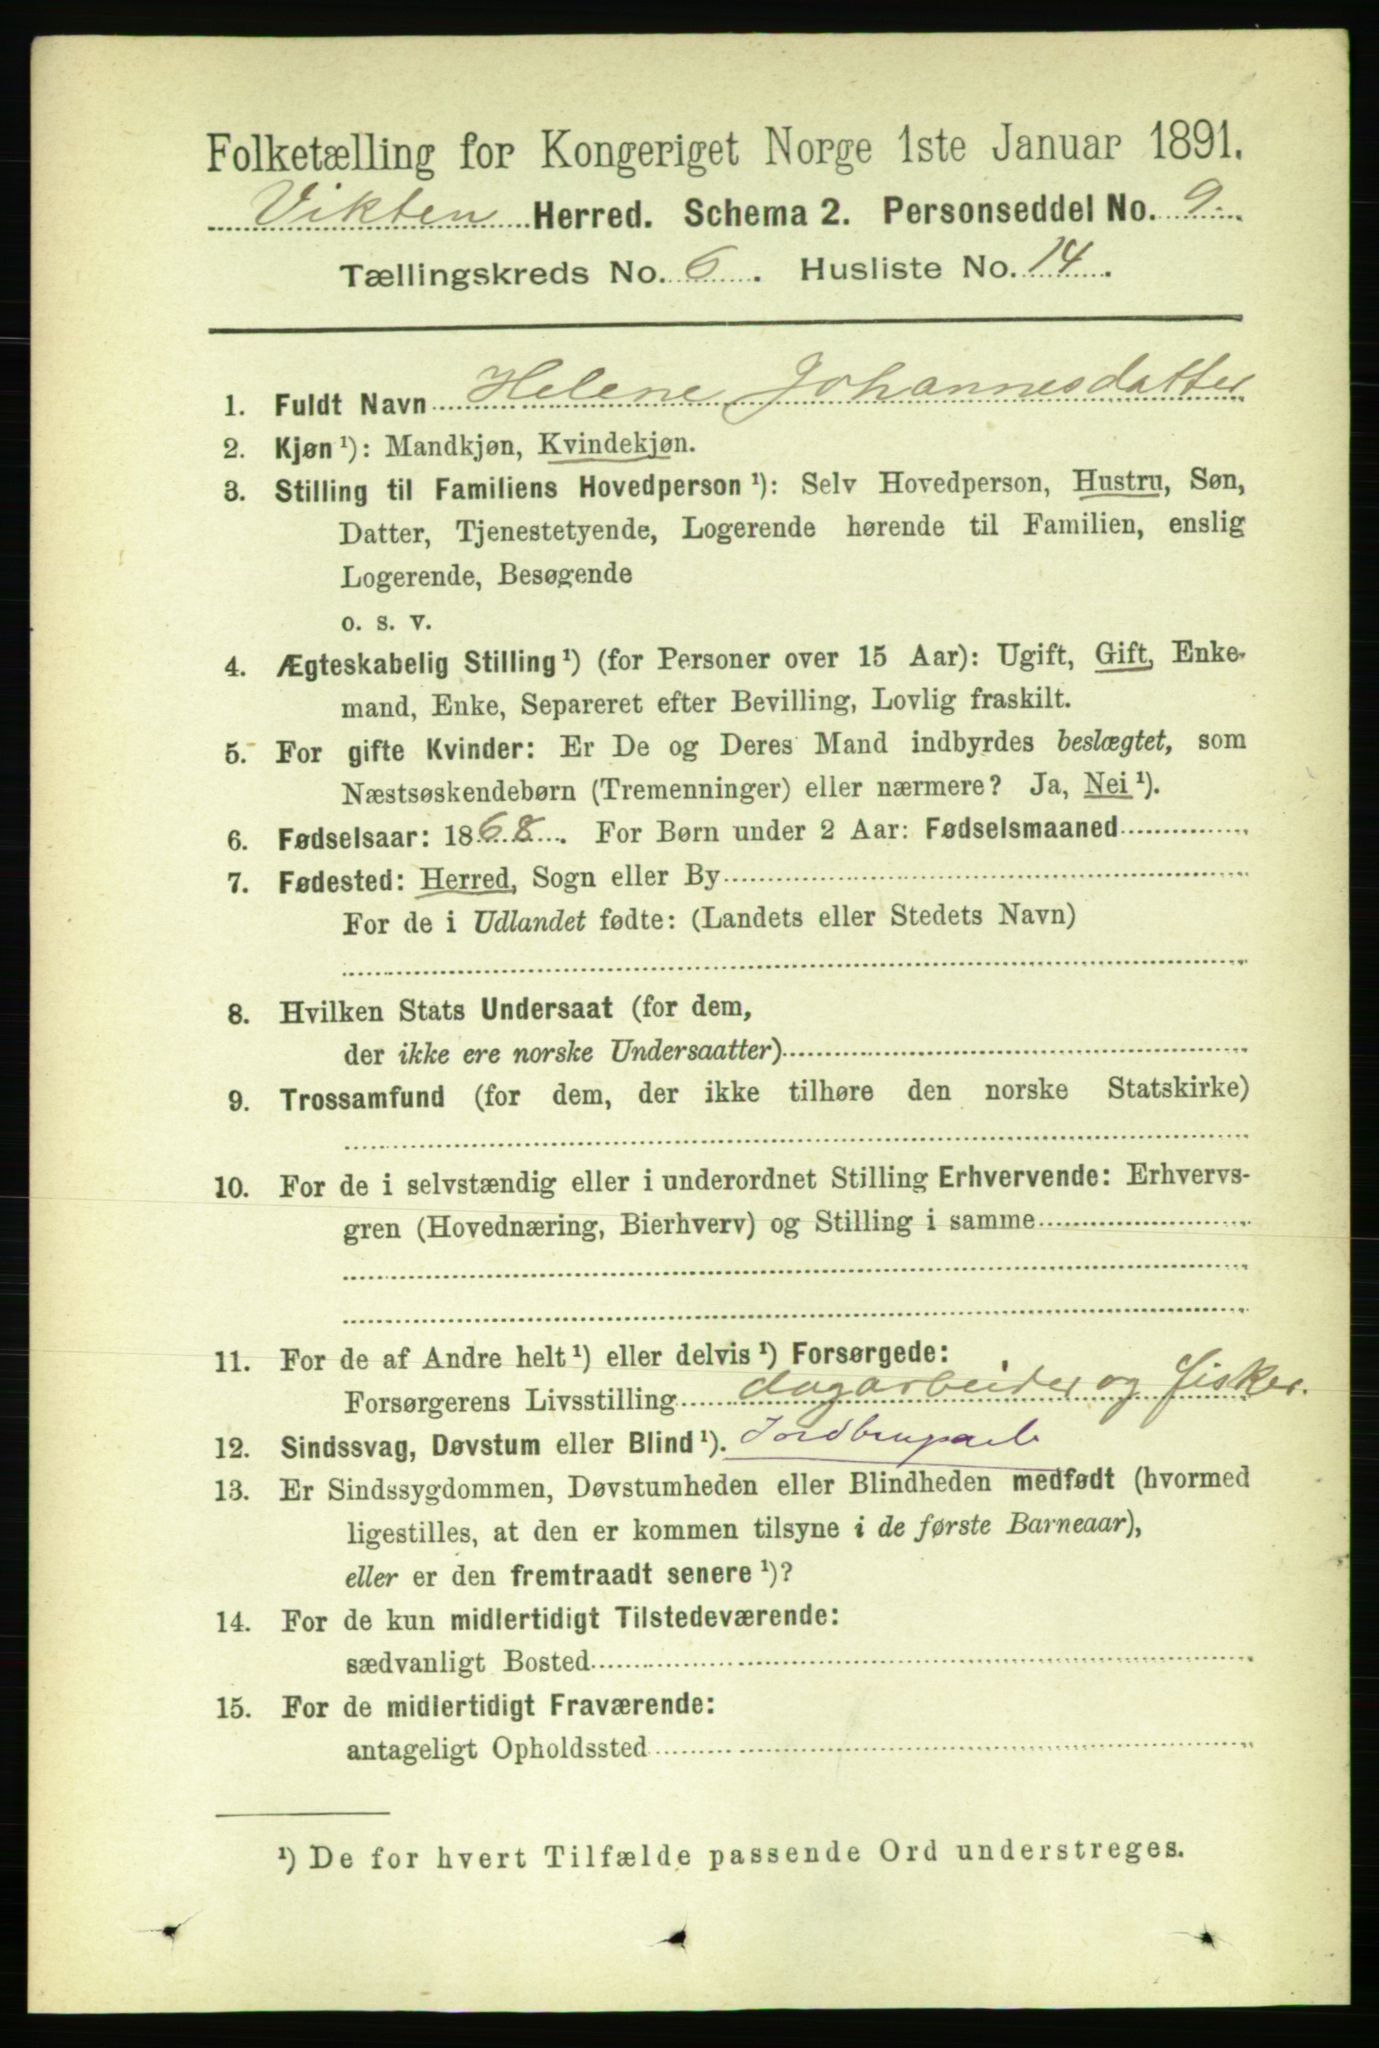 Folketælling for Kongeriget Norge 1ste Januar 1891.
Vikten Herred. Schema 2. Personseddel No. 9.
Tællingskreds No. 6. Husliste No. 14.
1. Fuldt Navn Helene Johannesdatter
2. Kjøn ¹): Mandkjøn, Kvindekjøn.
3. Stilling til Familiens Hovedperson ¹): Selv Hovedperson, Hustru, Søn,
Datter, Tjenestetyende, Logerende hørende til Familien, enslig
Logerende, Besøgende
o. s. v.
4. Ægteskabelig Stilling ¹) (for Personer over 15 Aar): Ugift, Gift, Enke-
mand, Enke, Separeret efter Bevilling, Lovlig fraskilt.
5. For gifte Kvinder: Er De og Deres Mand indbyrdes beslægtet, som
Næstsøskendebørn (Tremenninger) eller nærmere? Ja, Nei ¹).
6. Fødselsaar: 1868. For Børn under 2 Aar: Fødselsmaaned
7. Fødested: Herred, Sogn eller By
For de i Udlandet fødte: (Landets eller Stedets Navn)
8. Hvilken Stats Undersaat (for dem,
der ikke ere norske Undersaatter)
9. Trossamfund (for dem, der ikke tilhøre den norske Statskirke)
10. For de i selvstændig eller i underordnet Stilling Erhvervende: Erhvervs-
gren (Hovednæring, Bierhverv) og Stilling i samme
11. For de af Andre helt ¹) eller delvis ¹) Forsørgede:
Forsørgerens Livsstilling dagarbeider og fisker.
12. Sindssvag, Døvstum eller Blind ¹).
13. Er Sindssygdommen, Døvstumheden eller Blindheden medfødt (hvormed
ligestilles, at den er kommen tilsyne i de første Barneaar),
eller er den fremtraadt senere ¹)?
14. For de kun midlertidigt Tilstedeværende:
sædvanligt Bosted
15. For de midlertidigt Fraværende:
antageligt Opholdssted
¹) De for hvert Tilfælde passende Ord understreges.